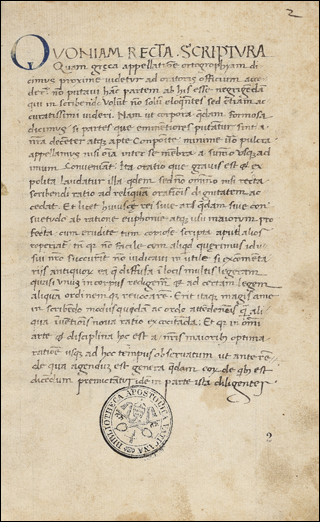 2
QVONIAM RECTA SCRIPTVRA
Quam gręca appellatiõe ortographyam di
cimus proxime videtur ad oratoris officium acce
dere. nõ putavi hanc partem ab his esse negligẽdã
qui in scribendo Volũt nõ solũ eloqũtes sed etiam ac
curatissimi videri. Nam ut corpora quedam formosa
dicimus si partes que eminentiores putãtur sint
decẽter atque apte Composite minime ũo pulcra
appellamus nisi oĩa inter se mẽbra a sũmo usque ad
imum Conveniãt. Ita oratio que gravis est et ex
polita laudatur illa quidem sed nõ omnĩo nisi recta
scribendi ratio ad reliquã orationis dignitatem ac
cedat. Et licet huiusce rei sive ars quedam sive con
suetudo ab ratione euphonie atque usu maiorum pro
fecta cum erudite tum copiose scripta apud alios
reperiat tñ quia nõ facile cum aliquid querimus id ve
sui nõ succurrit nõ iudicavi inutile si ex cõmẽta
riis antiquorum ea que diffusa ĩ locis multis legeram
quasi ĩ unũ corpus redigerem et ad certam legem
aliqua ordinemque revocare. Erit itaque magis
in scribẽdo modus quedam ac ordo attendendus quam ali
qua ĩventiõis nova ratio excogitanda: Et quia in omni
arte et disciplina hoc est a nostris maioribus optima
ratione usque ad hec tempus observatum ut ante re
de qua agendũ est genera quedam eorum de quibus est
dicendum premictatur idem in parte ista diligenter
BIBLIOTHECA APOSTOLICA VATICANA
2